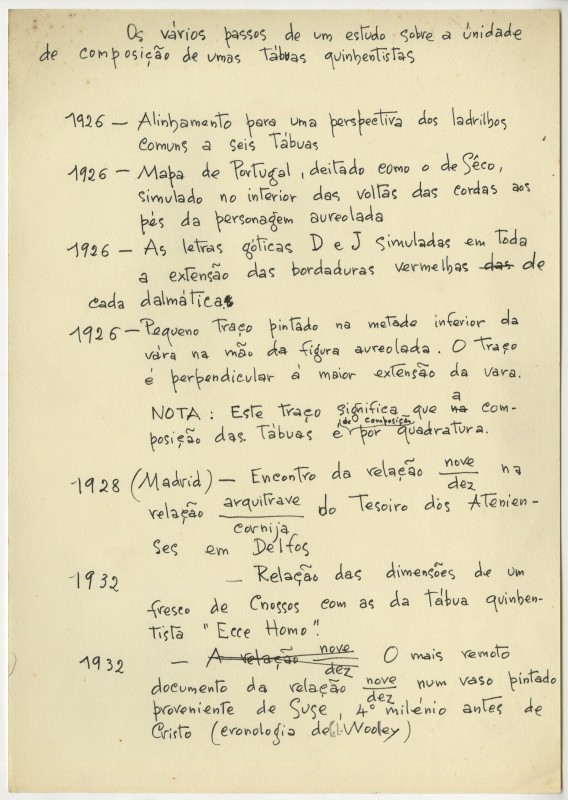 Os vários passos de um estudo sobre a únidade
de composição de umas tábuas quinhentistas
1926 — Alinhamento para uma perspectiva dos ladrilhos
comuns a seis Tábuas
1926 — Mapa de Portugal, deitado como o de Sêco,
simulado no interior das voltas das cordas aos
pés da personagem aureolada
1926 — As letras góticas D e J simuladas em toda
a extensão das bordaduras vermelhas das de
cada dalmática
1926 — Pequeno Traço pintado na metade inferior da
vára na mão da figura aureolada. O Traço
é perpendicular á maior extensão da vara.
NOTA: Este traço significa que na a com-
posição das Tábuas é de composição por quadratura.
1928 (Madrid) — Encontro da relação nove/dez na
relação arquitrave/cornija do Tesoiro dos Atenien-
ses em Delfos
1932 — Relação das dimensões de um
fresco de Cnossos com as da tábua quinhen-
tista "Ecce Homo".
1932 — A relação nove/dez O mais remoto
documento da relação nove/dez num vaso pintado
proveniente de Suse, 4º milénio antes de
Cristo (cronologia de Wooley)